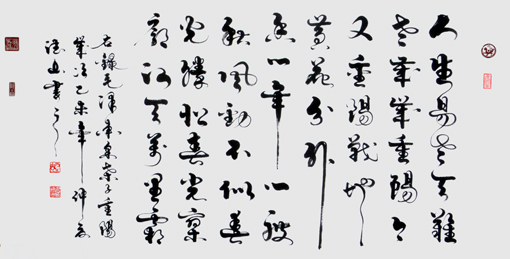 人生易老天難
老歲歲重陽今
又重陽戰地
黃花分外
香一年一度
秋風勁不似春
光勝似春光寥
廓江天萬里霜
右錄毛澤東采桑子重陽
乙未年
山書